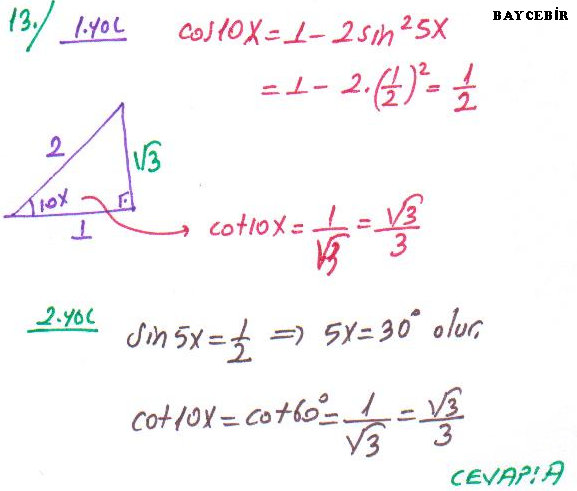 BAYCEBİR
13./ 1.YOL
cos10X = 1 - 2sin²5X
= 1 - 2.(1/2)² = 1/2
2
√3
10X
1
cot10X = 1/√3 = √3/3
2.YOL
sin5X = 1/2 ⇒ 5X = 30° olur.
cot10X = cot60° = 1/√3 = √3/3
CEVAP:A